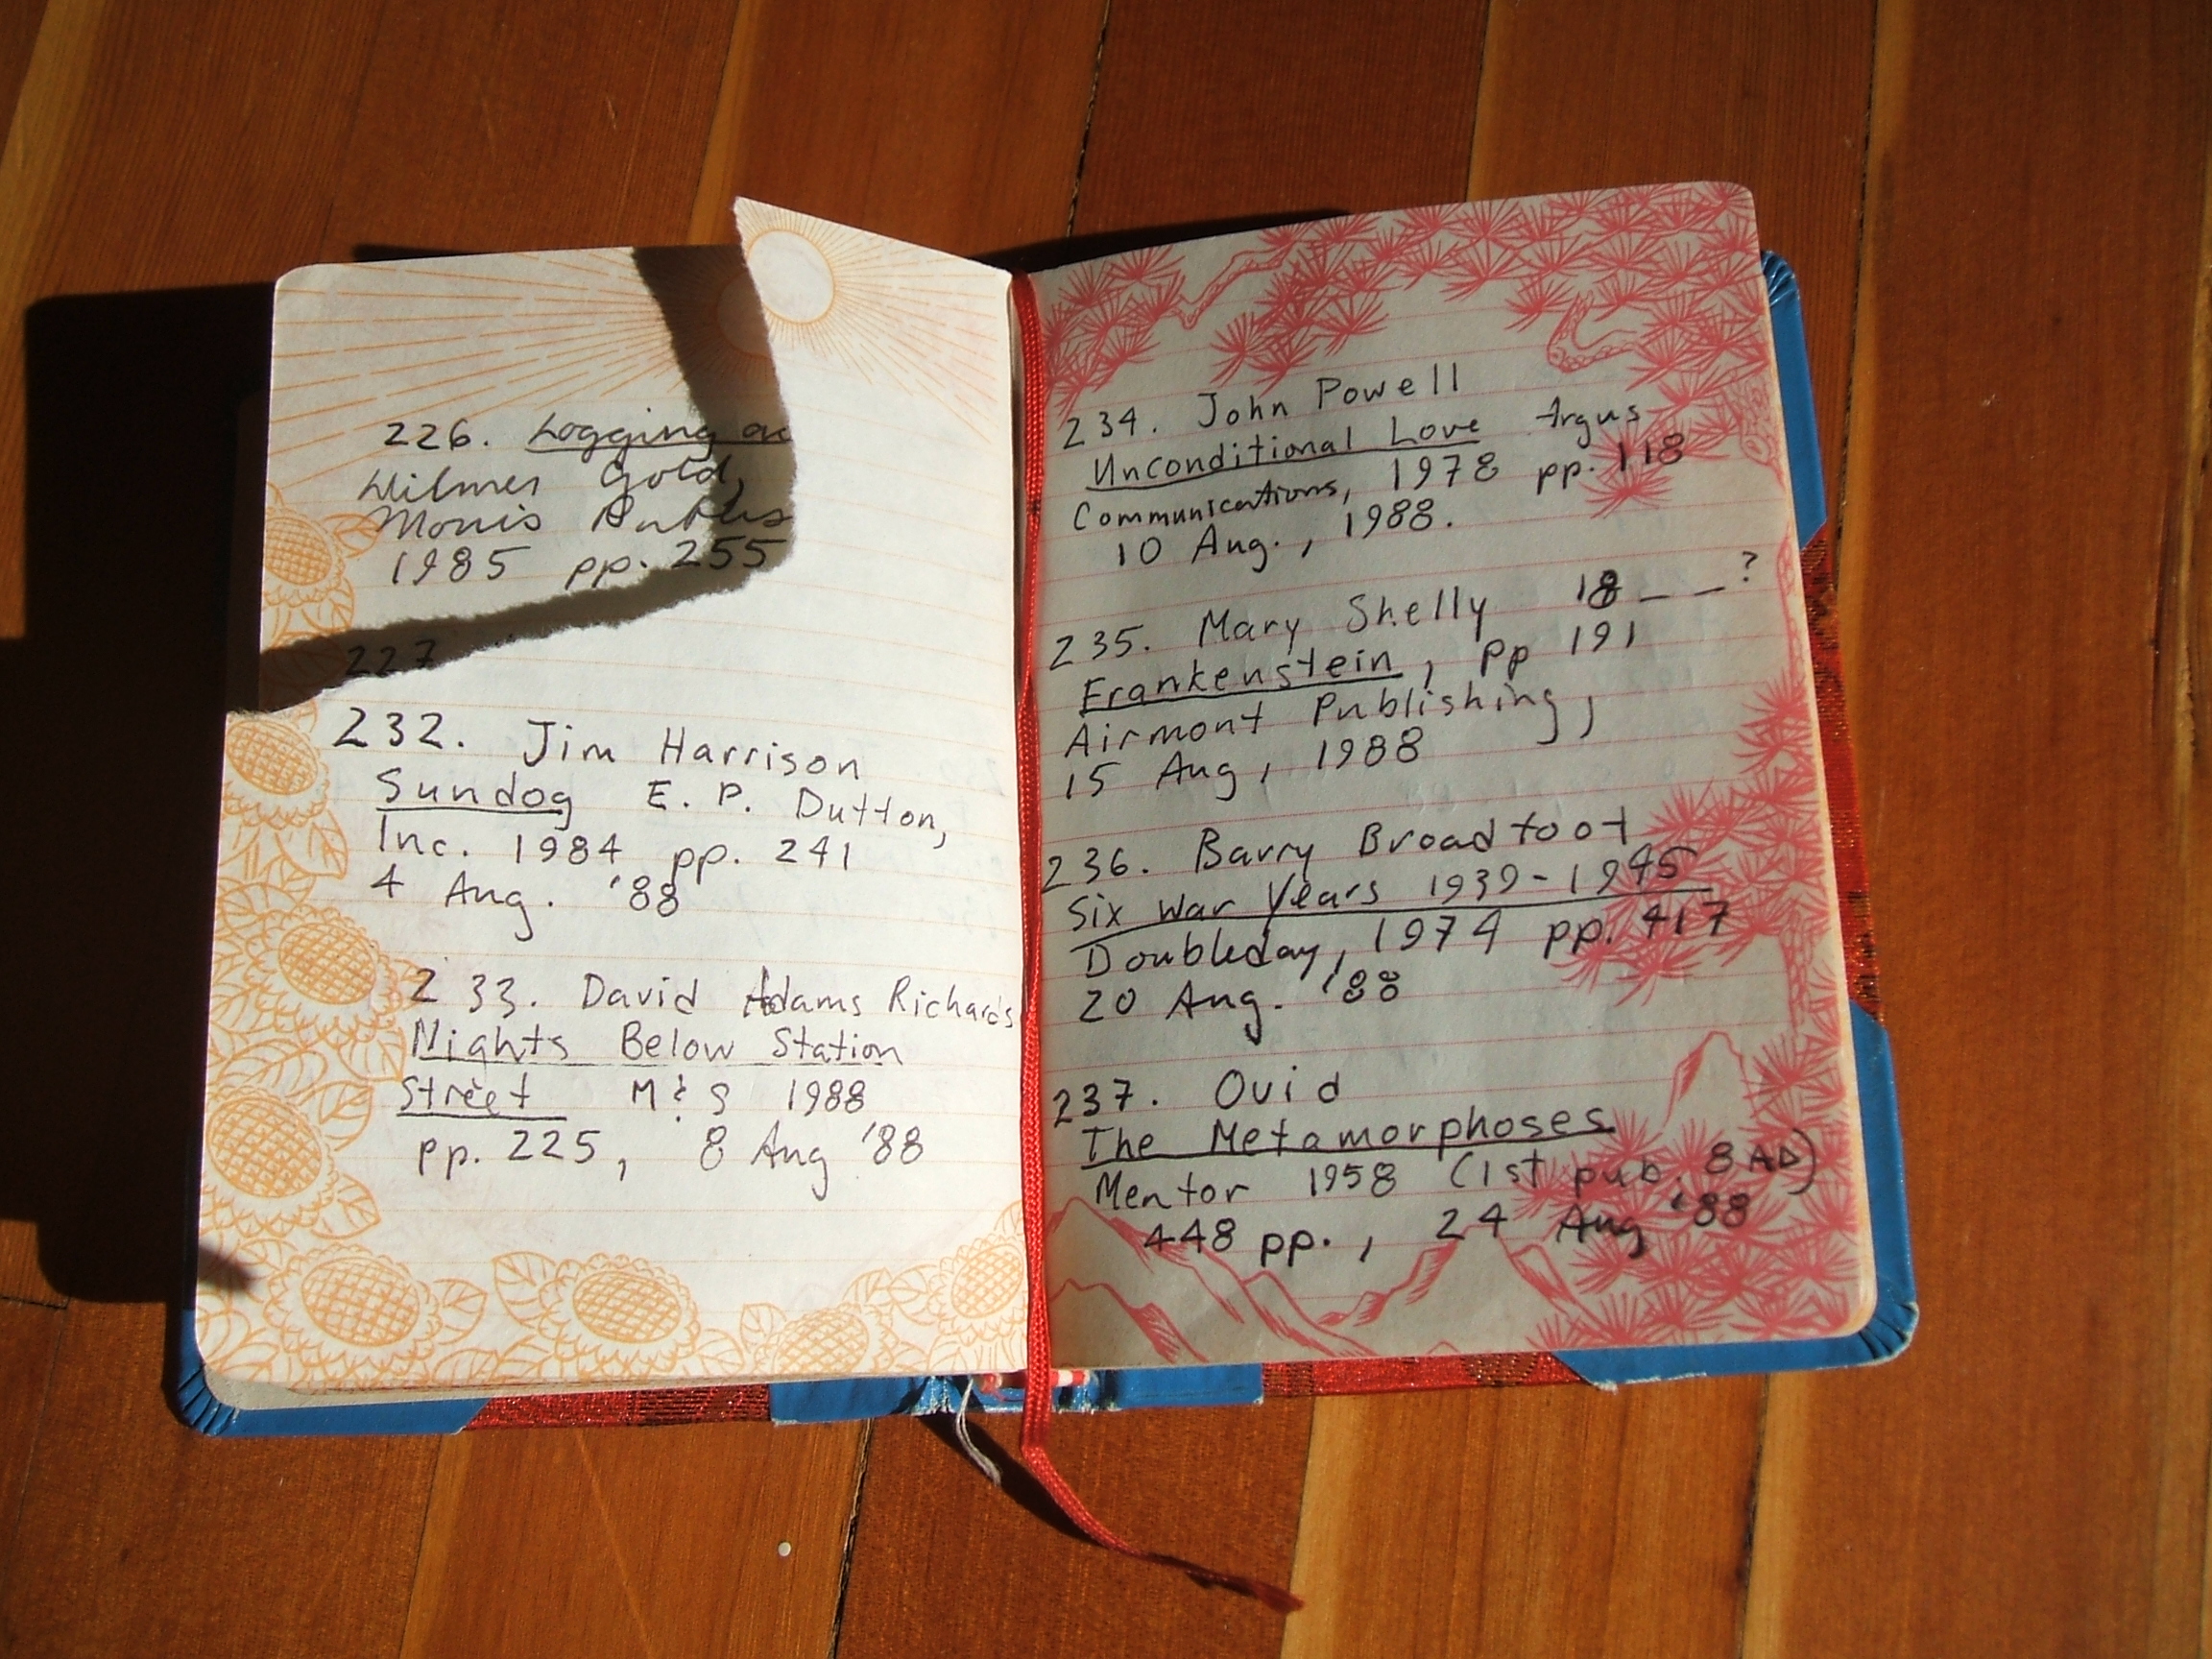 226. Logging a
Wilmer Gold,
Morris Publis
1985 pp. 255
227
232. Jim Harrison
Sundog E. P. Dutton,
Inc. 1984 pp. 241
4 Aug. '88
233. David Adams Richards
Nights Below Station
Street M & S 1988
pp. 225, 8 Aug '88
234. John Powell
Unconditional Love Argus
Communications, 1978 pp. 118
10 Aug., 1988.
235. Mary Shelly 18 _ _ ?
Frankenstein, pp 191
Airmont Publishing,
15 Aug, 1988
236. Barry Broadfoot
Six War Years 1939-1945
Doubleday, 1974 pp. 417
20 Aug. '88
237. Ovid
The Metamorphoses
Mentor 1958 (1st pub. 8 AD)
448 pp., 24 Aug '88